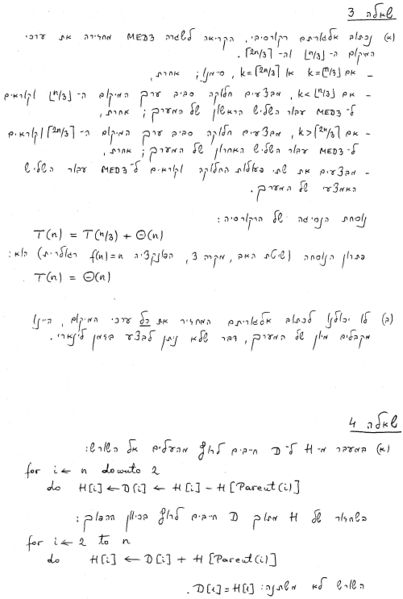 שאלה 3
(א) נכתוב אלגוריתם רקורסיבי. הקריאה לשגרה MED3 מחזירה את ערכי
המיקום ה-⌊n/3⌋ וה-⌈2n/3⌉.
- אם k=⌊n/3⌋ או k=⌈2n/3⌉, סיימנו; אחרת,
- אם k<⌊n/3⌋, מבצעים חלוקה סביב ערך המיקום ה-⌊n/3⌋ וקוראים
ל-MED3 עבור השליש הראשון של המערך; אחרת,
- אם k>⌈2n/3⌉, מבצעים חלוקה סביב ערך המיקום ה-⌈2n/3⌉ וקוראים
ל-MED3 עבור השליש האחרון של המערך; אחרת,
- מבצעים את שתי פעולות החלוקה וקוראים ל-MED3 עבור השליש
האמצעי של המערך.
נוסחת הנסיגה של הרקורסיה:
T(n) = T(n/3) + Θ(n)
פתרון הנוסחה (שיטת האב, מקרה 3, הפונקציה f(n)=n רגולרית) הוא:
T(n) = Θ(n)
(ב) לו יכולנו לכתוב אלגוריתם המחזיר את כל ערכי המיקום, היינו
מקבלים מיון של המערך, דבר שלא ניתן לבצע בזמן לינארי.
שאלה 4
(א) במעבר מ-H ל-D חייבים לרוץ מהעלים אל השורש:
for i ← n downto 2
do H[i] ← D[i] ← H[i] - H[Parent(i)]
בשחזור של H מתוך D חייבים לרוץ בכיוון ההפוך:
for i ← 2 to n
do H[i] ← D[i] + H[Parent(i)]
השורש לא משתנה: D[i]=H[i].